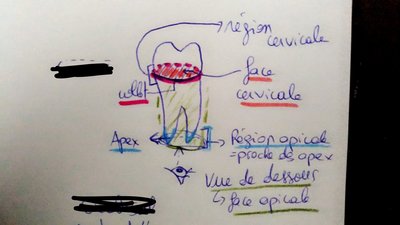 région
cervicale
face
cervicale
collet
Apex
Région apicale
= proche de apex
Vue de dessous
↳ face apicale